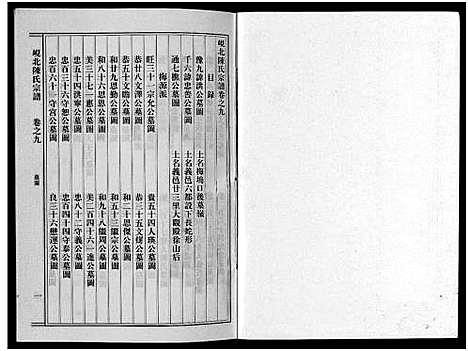 峴北陳氏宗譜卷之九
目錄
豫九諱洪公墓圖
土名梅塢口後墓嶺
千六諱忠善公墓圖
土名義邑六都設下長蛇形
通七樵公墓圖
土名義邑廿三里大觀殿後山后
梅源派
旺三十一宗允公墓圖
貴五十四人瑛公墓圖
恭廿八文澤公墓圖
恭三十五文煒公墓圖
恭五十文瞻公墓圖
和二十思傑公墓圖
和廿九思勤公墓圖
和五十三徽宗公墓圖
和八十六思恩公墓圖
和九十八徽周公墓圖
美三十七一惠公墓圖
美二百四十六一進公墓圖
忠五十四洪寧公墓圖
忠八十二守義公墓圖
忠百三十六守恕公墓圖
忠百四十四守泰公墓圖
忠百六十一守宮公墓圖
良三十六懋達公墓圖
峴北陳氏宗譜
卷之九
墓圖
一